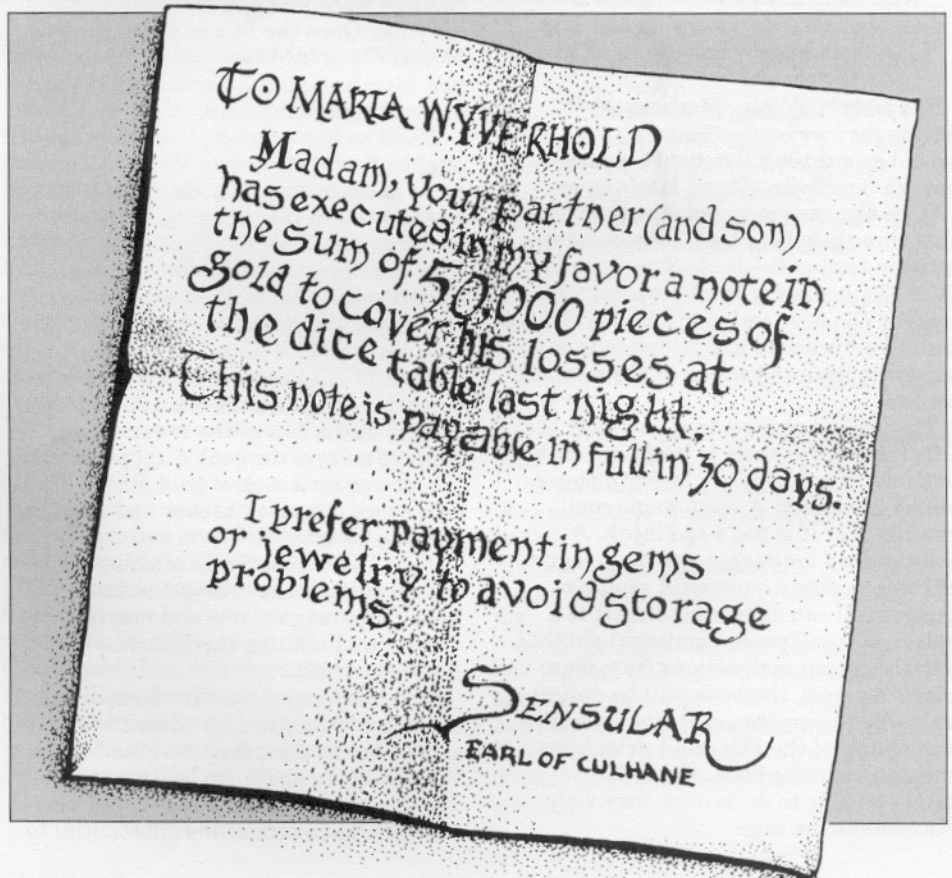 TO MARIA WYVERHOLD
Madam, your partner (and son)
has executed in my favor a note in
the sum of 50,000 pieces of
gold to cover his losses at
the dice table last night.
This note is payable in full in 30 days.
I prefer payment in gems
or jewelry to avoid storage
problems
SENSULAR
EARL OF CULHANE